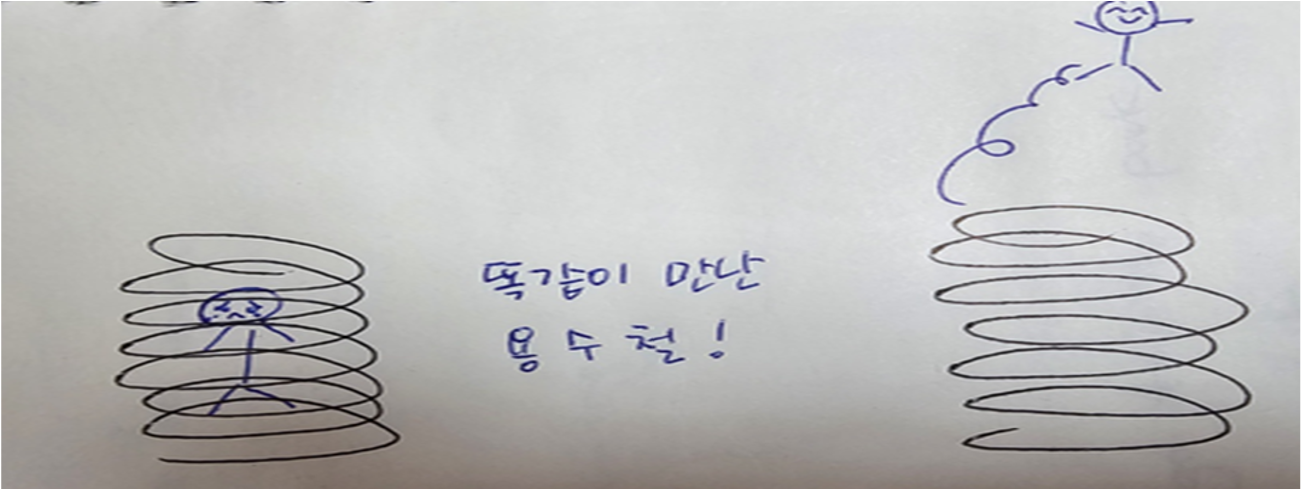 똑같이 만난
용수철!